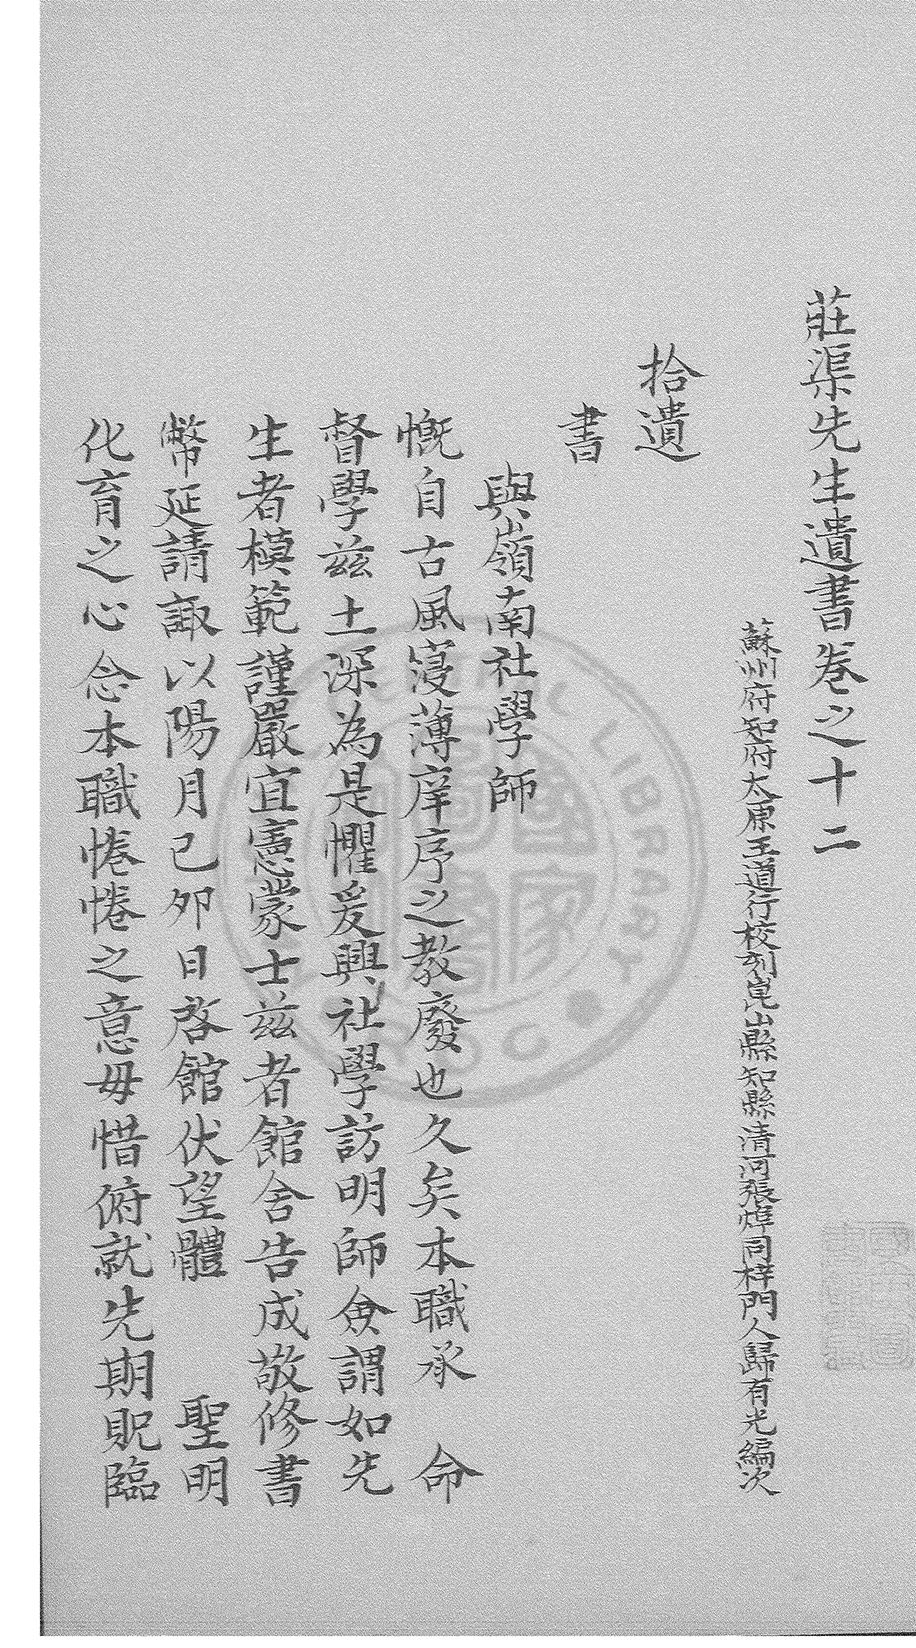 莊渠先生遺書卷之十二
蘇州府知府太原王道行校刻崑山縣知縣清河張煒同梓門人歸有光編次
拾遺
書
與嶺南社學師
慨自古風寖薄庠序之教廢也久矣本職承　命
督學兹土深為是懼爰興社學訪明師僉謂如先
生者模範謹嚴宜憲蒙士兹者館舍告成敬修書
幣延請諏以陽月己夘日啓館伏望體　　聖明
化育之心念本職惓惓之意毋惜俯就先期貺臨
CENTRAL LIBRARY
國家圖書
R.O.C